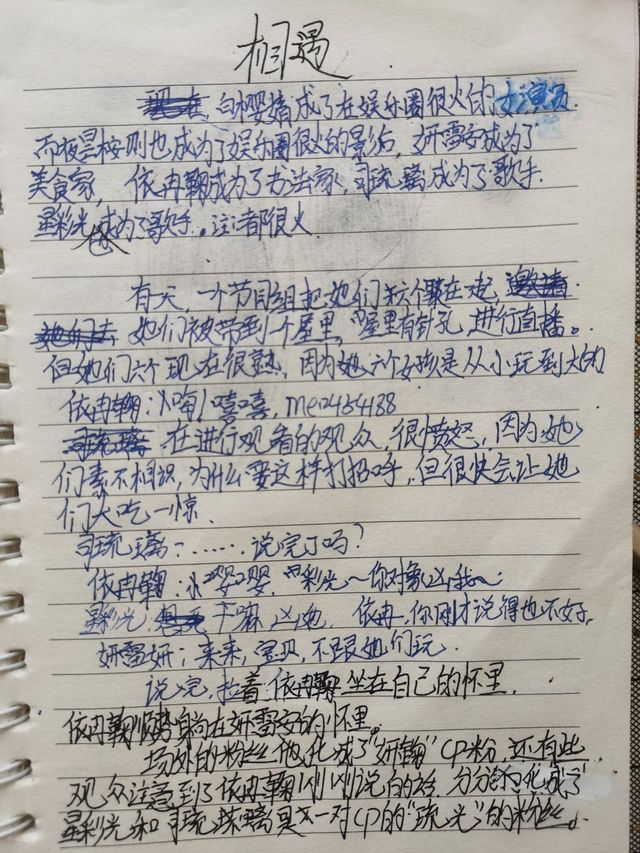 相遇
白樱婧成了在娱乐圈很火的女演员
而夜昙桉则也成为了娱乐圈很火的影后，妍雪安成为了
美食家，依冉鞠成为了办法家，司琉璃成为了歌手.
星彩光也成为了歌手。注:都很火
有天，一个节目组把她们六个聚在一起，邀请
她们去，她们被带到一个屋里，屋里有针孔，进行直播。
但她们六个现在很熟，因为她六个女孩是从小玩到大的
依冉鞠：嘻嘻，
司琉璃：在进行观看的观众，很愤怒，因为她
们素不相识，为什么要这样打招呼，但很快会让她
们大吃一惊.
司琉璃：……说完了吗？
依冉鞠：小嘤嘤，彩光～你对象凶我～
星彩光：干嘛凶她，依冉，你刚才说得也不好.
妍雪妍：来来，宝贝，不跟她们玩.
说完，抬着依冉鞠坐在自己的怀里.
依冉鞠顺势身向在妍雪安的怀里。
场外的粉丝他化成了“妍鞠”CP粉，还有些
观众注意到了依冉鞠刚刚说的话，分分化成了
星彩光和司琉璃是一对CP的“琉光”的粉丝。